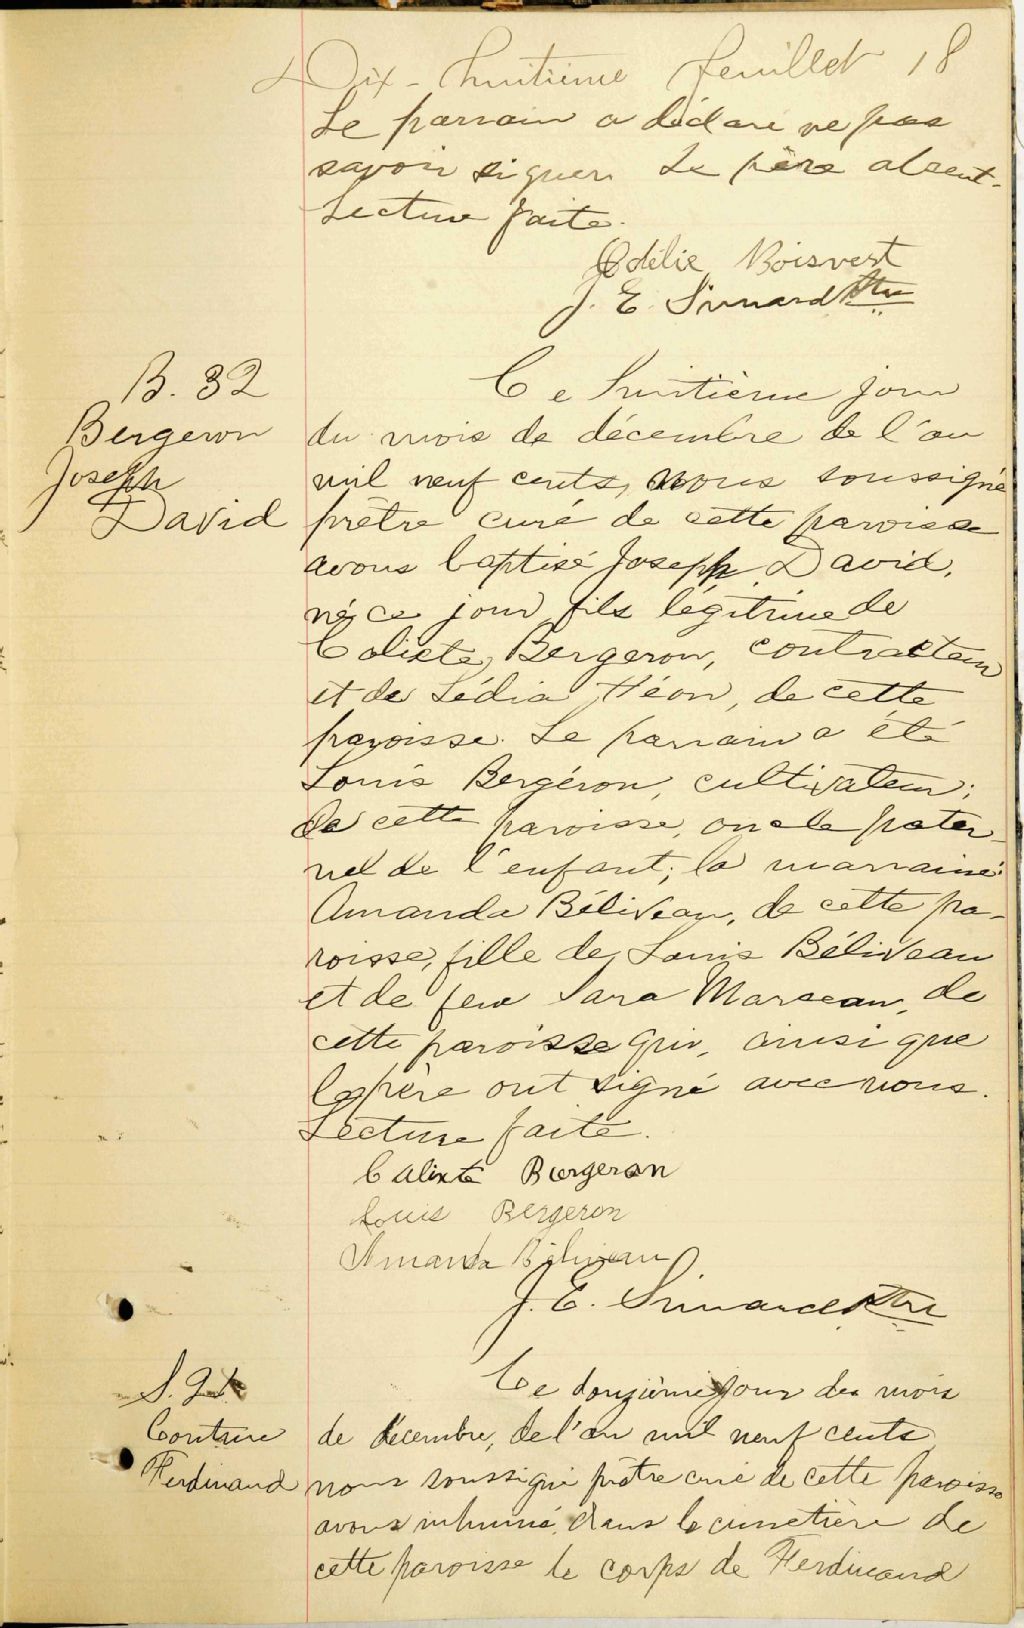 Dix-huitième feuillet 18
Le parrain a déclaré ne pas
savoir signer. Le père absent.
Lecture faite.
Odélie Boisvert
J. E. Simard Ptre
B. 32
Bergeron
Joseph
David
Ce huitième jour
du mois de décembre de l'an
mil neuf cents, nous soussigné
prêtre curé de cette paroisse
avons baptisé Joseph David,
né ce jour, fils légitime de
Calixte Bergeron, contracteur
et de Lédia Héon, de cette
paroisse. Le parrain a été
Louis Bergéron, cultivateur;
de cette paroisse, oncle pater-
nel de l'enfant; la marraine:
Amanda Béliveau, de cette pa-
roisse, fille de Louis Béliveau
et de feue Sara Marceau, de
cette paroisse qui, ainsi que
le père ont signé avec nous.
Lecture faite.
Calixte Bergeron
Louis Bergeron
Amanda Béliveau
J. E. Simard Ptre
S.
Couture
Ferdinand
Ce douzième jour du mois
de décembre, de l'an mil neuf cents
nous soussigné prêtre curé de cette paroisse
avons inhumé dans le cimetière de
cette paroisse le corps de Ferdinand